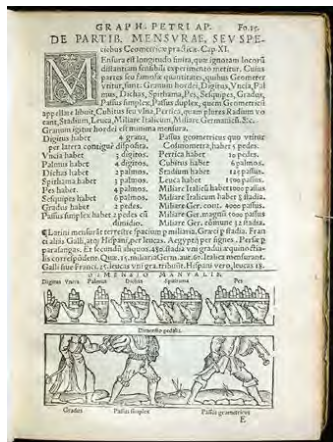 GRAPH. PETRI AP. Fo.15.
DE PARTIB. MENSVRAE, SEV SPE-
ciebus Geometricæ practicæ. Cap XI.
MEnsura est longitudo finita, quæ ignotam locorũ
distantiam sensibili experimento metitur. Cuius
partes seu famosæ quantitates, quibus Geometræ
vtuntur, sunt. Granum hordei, Digitus, Vncia, Pal
mus, Dichas, Spithama, Pes, Sesquipes, Gradus,
Passus simplex, Passus duplex, quem Geometricũ
appellare libuit, Cubitus seu vlna, Pertica, quam plures Radium vo
cant, Stadium, Leuca, Miliare Italicum, Miliare Germanicũ. &c.
Granum igitur hordei est minima mensura.
Digitus habet 4 grana,
per latera contiguè disposita.
Vncia habet 3 digitos.
Palmus habet 4 digitos.
Dichas habet 2 palmos.
Spithama habet 3 palmos.
Pes habet 4 palmos.
Sesquipes habet 6 palmos.
Gradus habet 2 pedes.
Passus simplex habet 2 pedes cũ
dimidio.
Passus geometricus quo vtitur
Cosmometra, habet 5 pedes.
Pertica habet 10 pedes.
Cubitus habet 6 palmos.
Stadium habet 125 passus.
Leuca habet 1500 passus.
Miliare Italicũ habet 1000 passus
Miliare Italicum habet 8 stadia.
Miliare Ger. cont. 4000 passus.
Miliare Ger. magnũ 5000 passus
Miliare Ger. cõmune 32 stadia.
Latini mensurãt terrestre spacium p miliaria. Græci p stadia. Fran
ci aliàs Galli, atq; Hispani, per leucas. Aegyptij per signes. Persæ p
parasangas.
DIMENSIO MANVALIS
Digitus Vncia Palmus Dichas Spithama Pes
Dimensio pedalis.
Gradus Passus simplex Passus geometricus
E